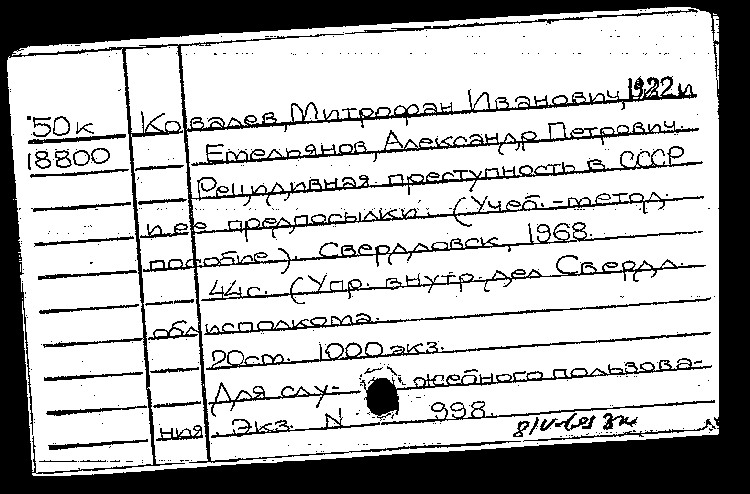 50к Ковалев, Митрофан Иванович, 1922 и
18800 Емельянов, Александр Петрович.
Рецидивная преступность в СССР
и ее предпосылки. (Учеб.-метод.
пособие). Свердловск, 1968.
44с. (Упр. внутр. дел Свердл.
облисполкома.
20cm. 1000 экз.
Для слу- жебного пользова-
ния. Экз. N 998.